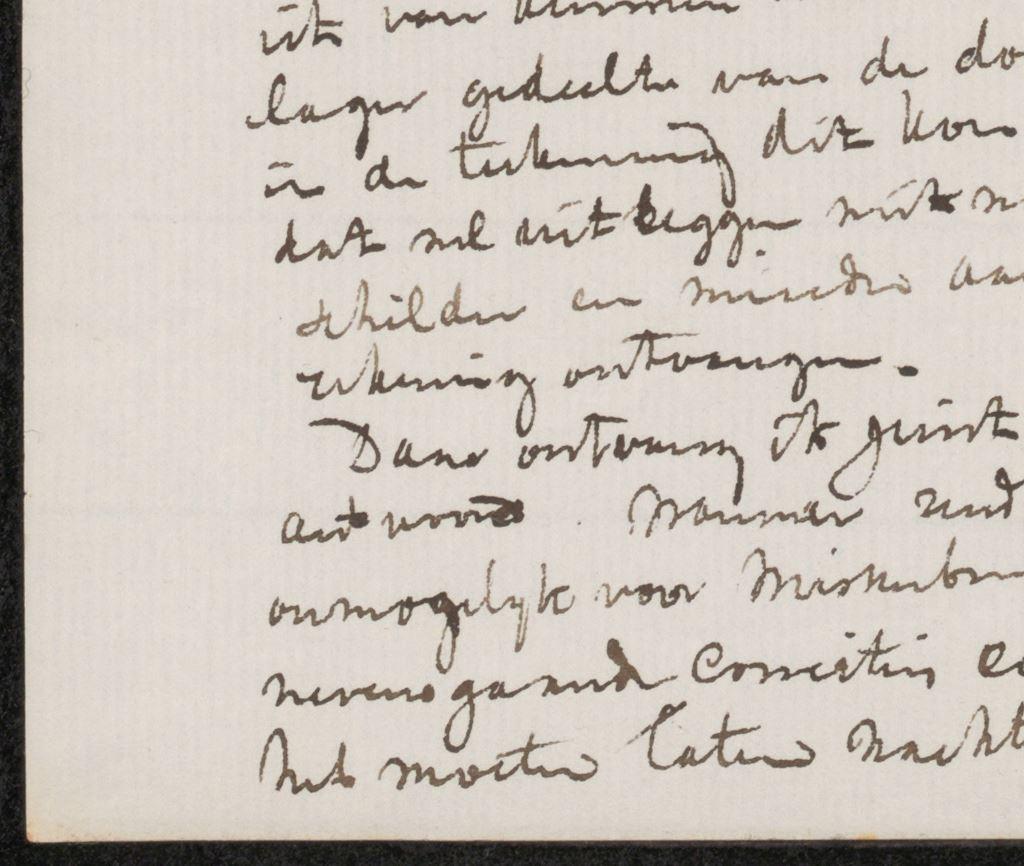 uit van kunnen
lager gedeelte van de do
in de teekening dit kon
dat wel uitleggen niet
schilder en minder aan
rekening ontvangen.
Dan ontvang ik juist
antwoord. Wanneer
onmogelijk voor
nevensgaande correctie
heb moeten laten